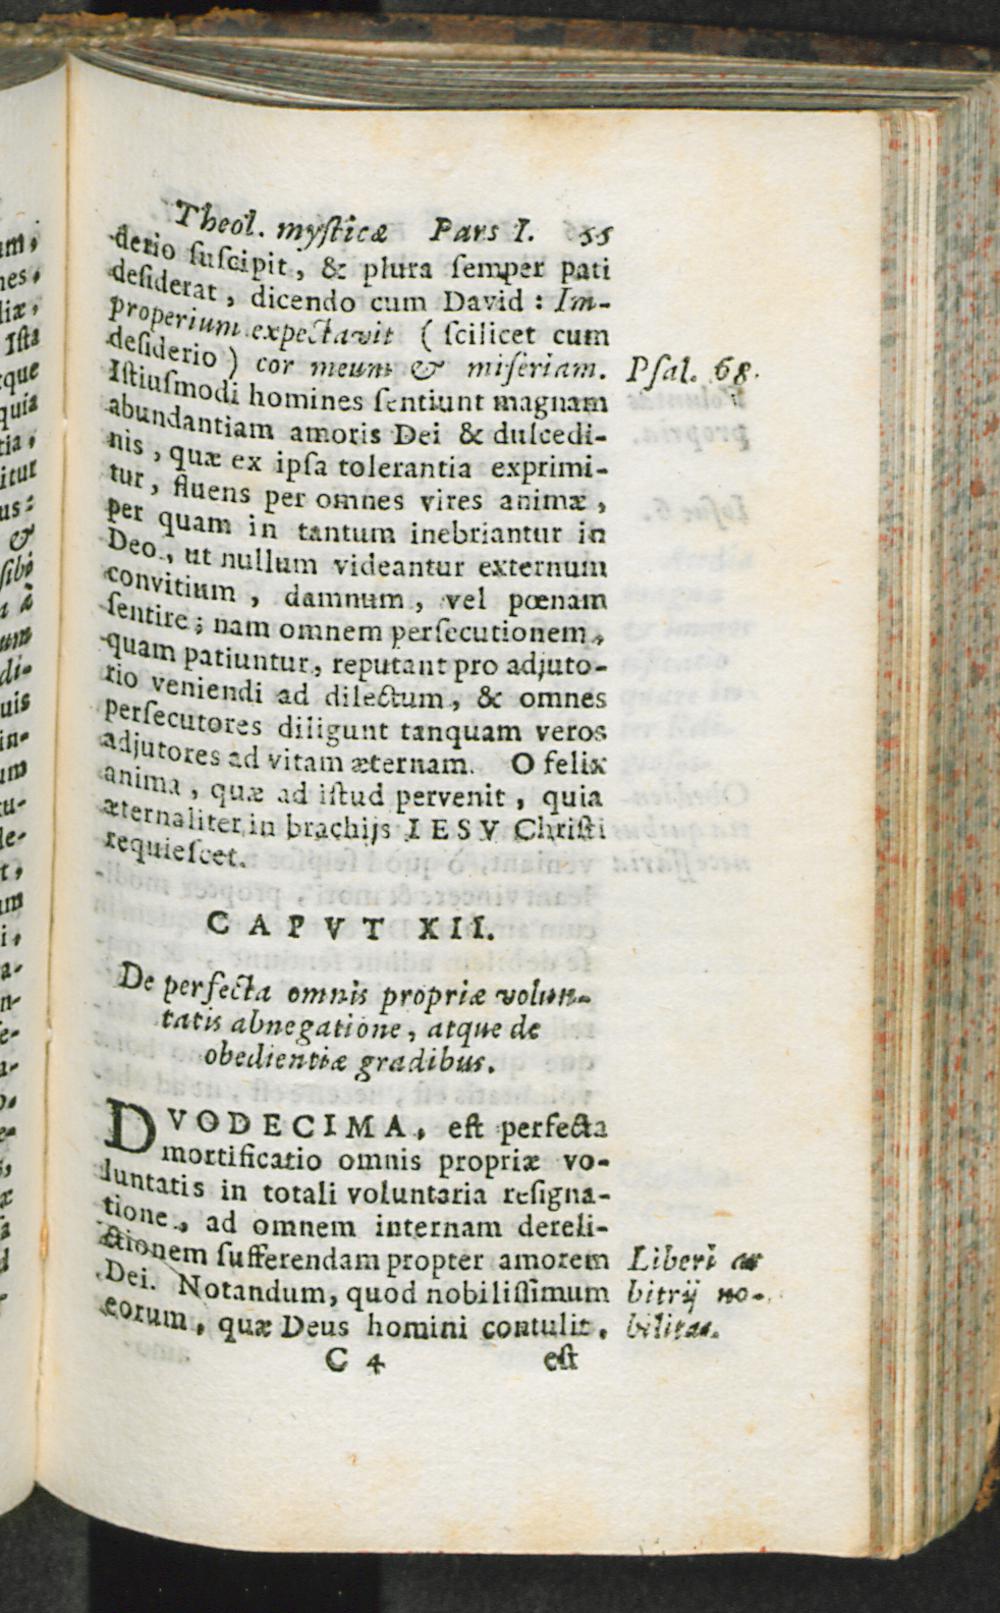 Theol. mysticæ Pars I. 55
derio suscipit, & plura semper pati
desiderat, dicendo cum David: Im-
properium expectavit (scilicet cum
desiderio) cor meum & miseriam. Psal. 68.
Istiusmodi homines sentiunt magnam
abundantiam amoris Dei & dulcedi-
nis, quæ ex ipsa tolerantia exprimi-
tur, fluens per omnes vires animæ,
per quam in tantum inebriantur in
Deo, ut nullum videantur externum
convitium, damnum, vel pœnam
sentire; nam omnem persecutionem,
quam patiuntur, reputant pro adjuto-
rio veniendi ad dilectum, & omnes
persecutores diligunt tanquam veros
adjutores ad vitam æternam. O felix
anima, quæ ad istud pervenit, quia
æternaliter in brachijs IESV Christi
requiescet.
CAPVT XII.
De perfecta omnis propriæ volun-
tatis abnegatione, atque de
obedientiæ gradibus.
DVODECIMA, est perfecta
mortificatio omnis propriæ vo-
luntatis in totali voluntaria resigna-
tione, ad omnem internam dereli-
ctionem sufferendam propter amorem Liberi ar
Dei. Notandum, quod nobilissimum bitrij no-
eorum, quæ Deus homini contulit, bilitas.
C 4 est